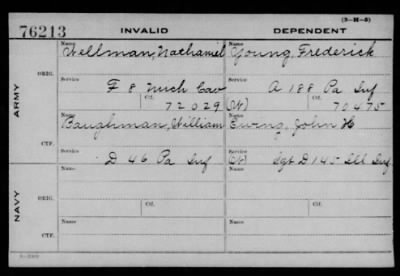 (3-M-5)
76213 INVALID DEPENDENT
Name Name
Wellman, Nathaniel Young, Frederick
ORIG. Service Service
F 8 Mich Cav A 188 Pa Inf
Ctf. Ctf.
72029 (W) 70475
ARMY
Name Name
Baughman, William Ewing, John H
CTF. Service Service
D 46 Pa Inf (W) Sgt D 145 Ill Inf
Name Name
ORIG. Service Service
Ctf. Ctf.
NAVY
Name Name
CTF. Service Service